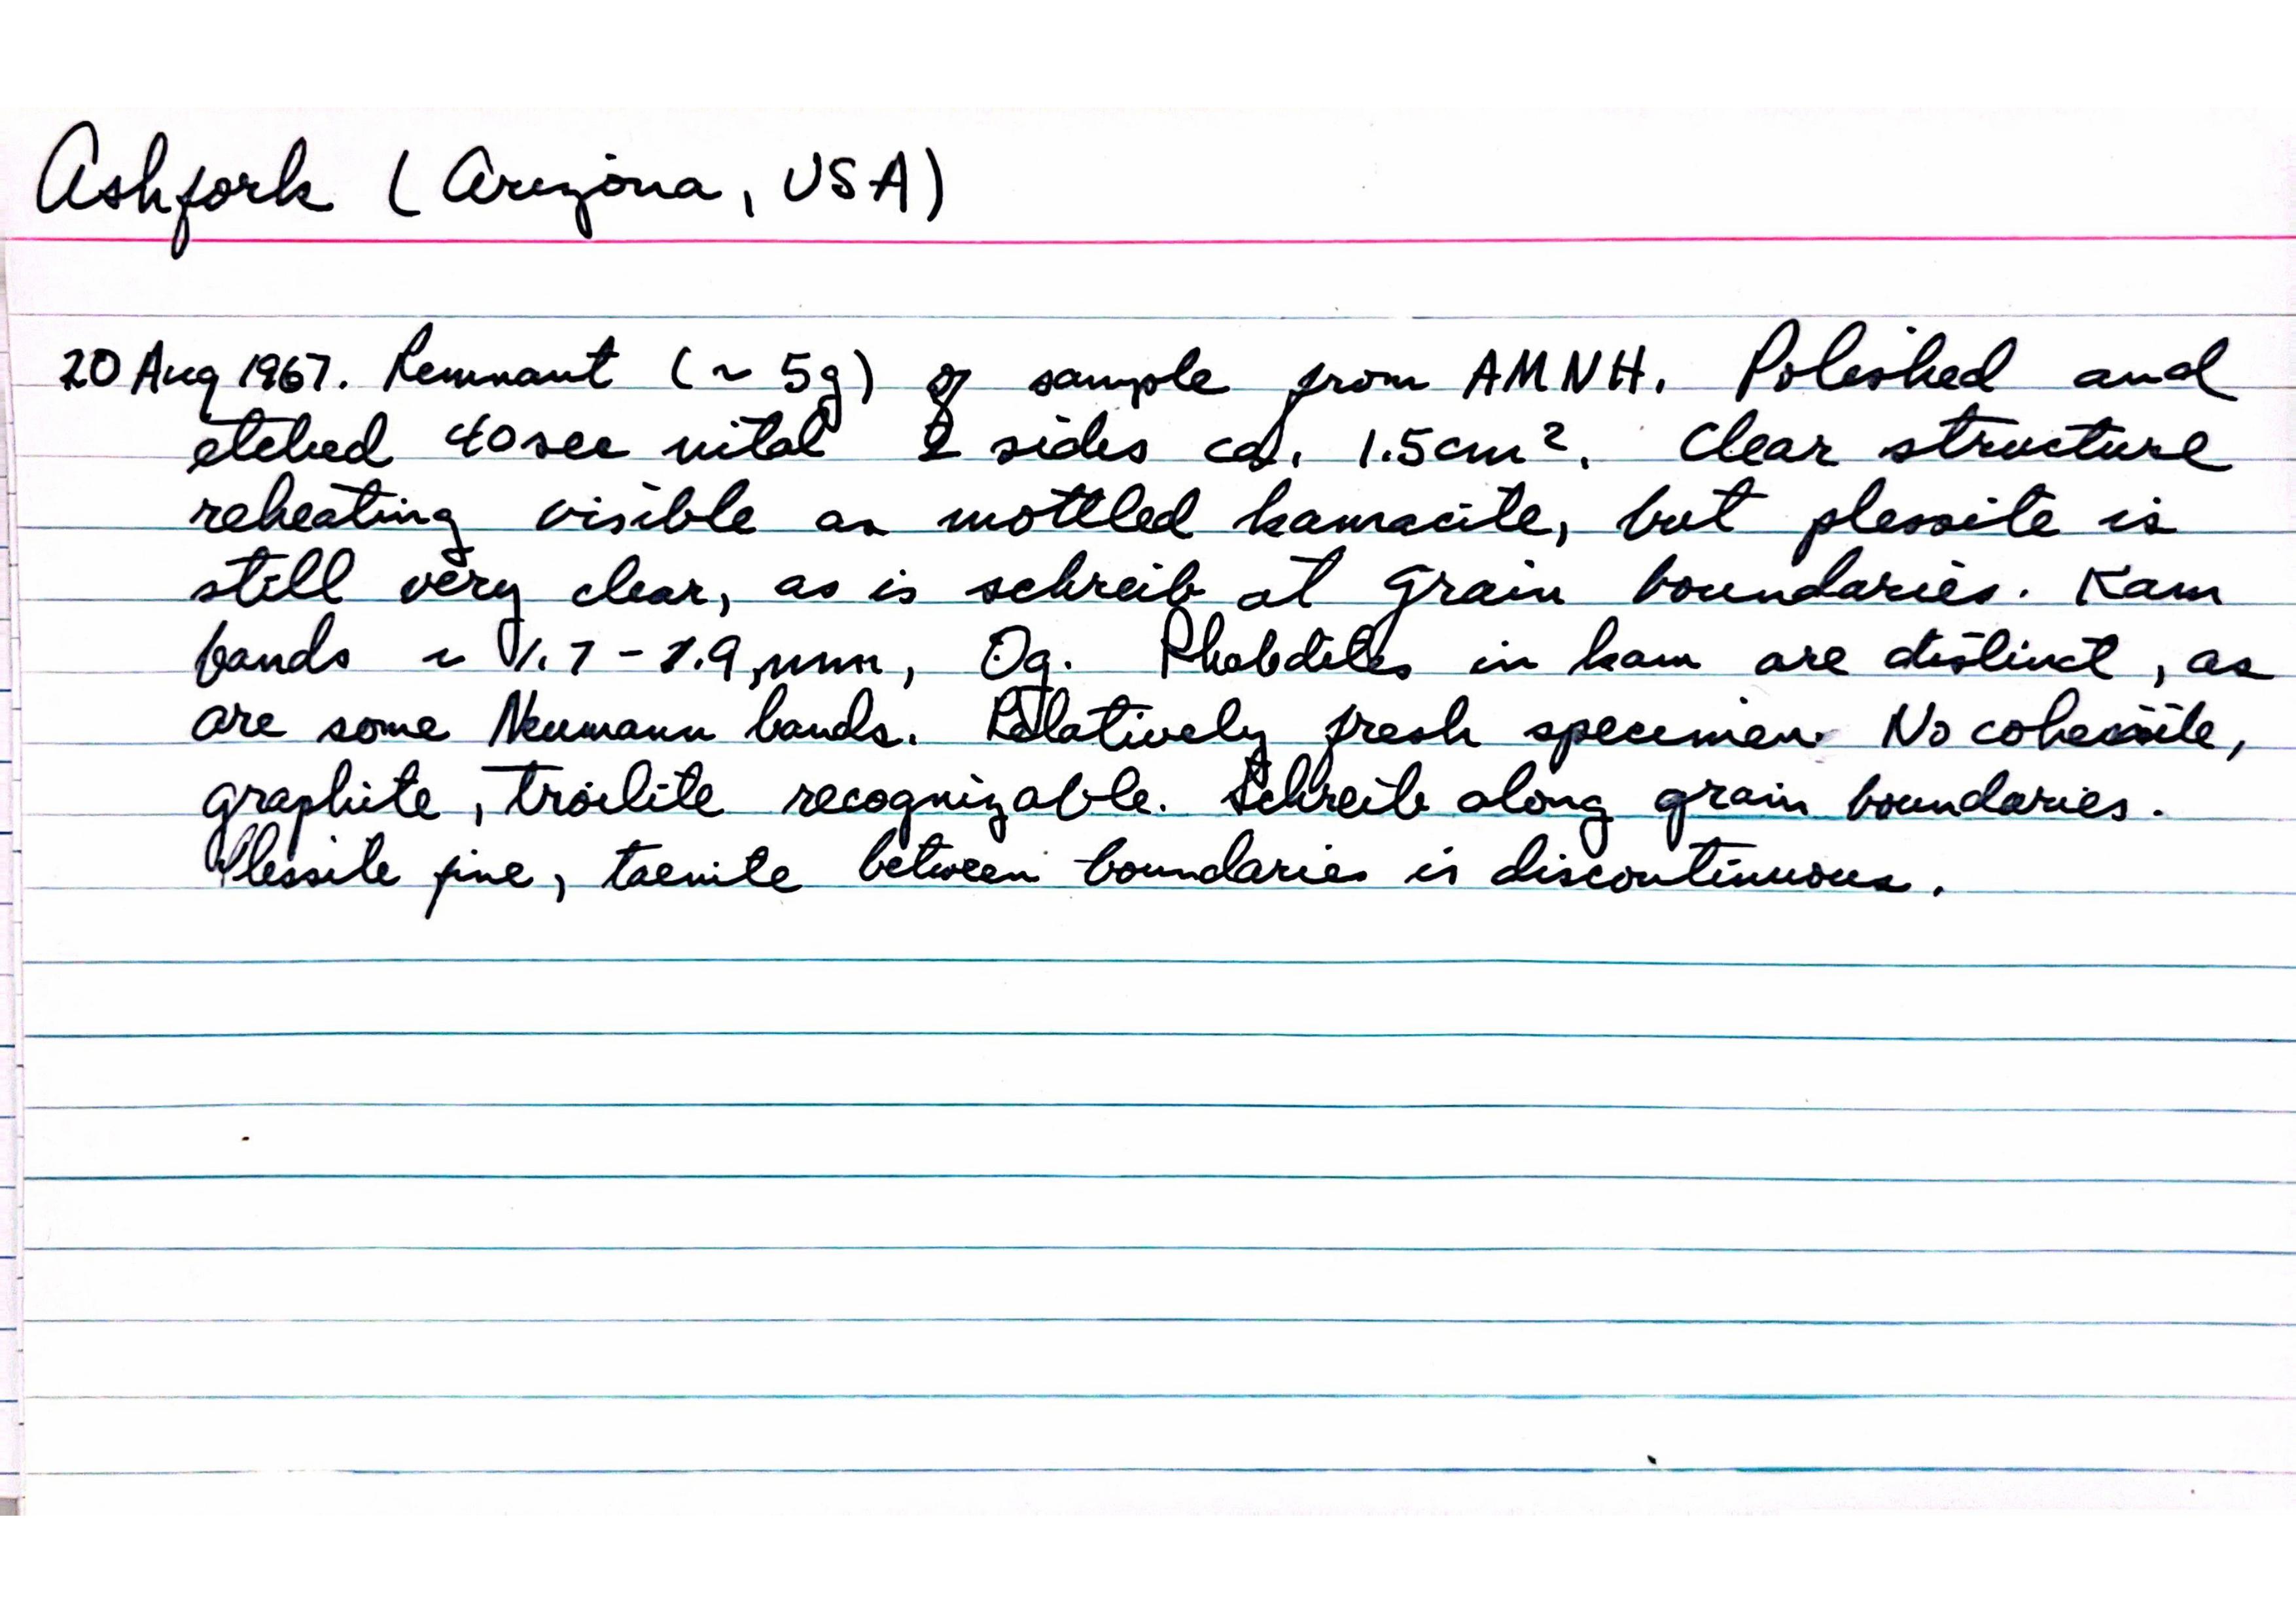 Ashfork (Arizona, USA)
20 Aug 1967. Remnant (~ 5g) of sample from AMNH. Polished and
etched 40 sec nital 2 sides ca. 1.5cm². Clear structure
reheating visible as mottled kamacite, but plessite is
still very clear, as is schreib at grain boundaries. Kam
bands ~ 1.7 - 1.9 mm, Og. Rhabdites in kam are distinct, as
are some Neumann bands. Relatively fresh specimen. No cohenite,
graphite, troilite recognizable. Schreib along grain boundaries.
Plessite fine, taenite between boundaries is discontinuous.